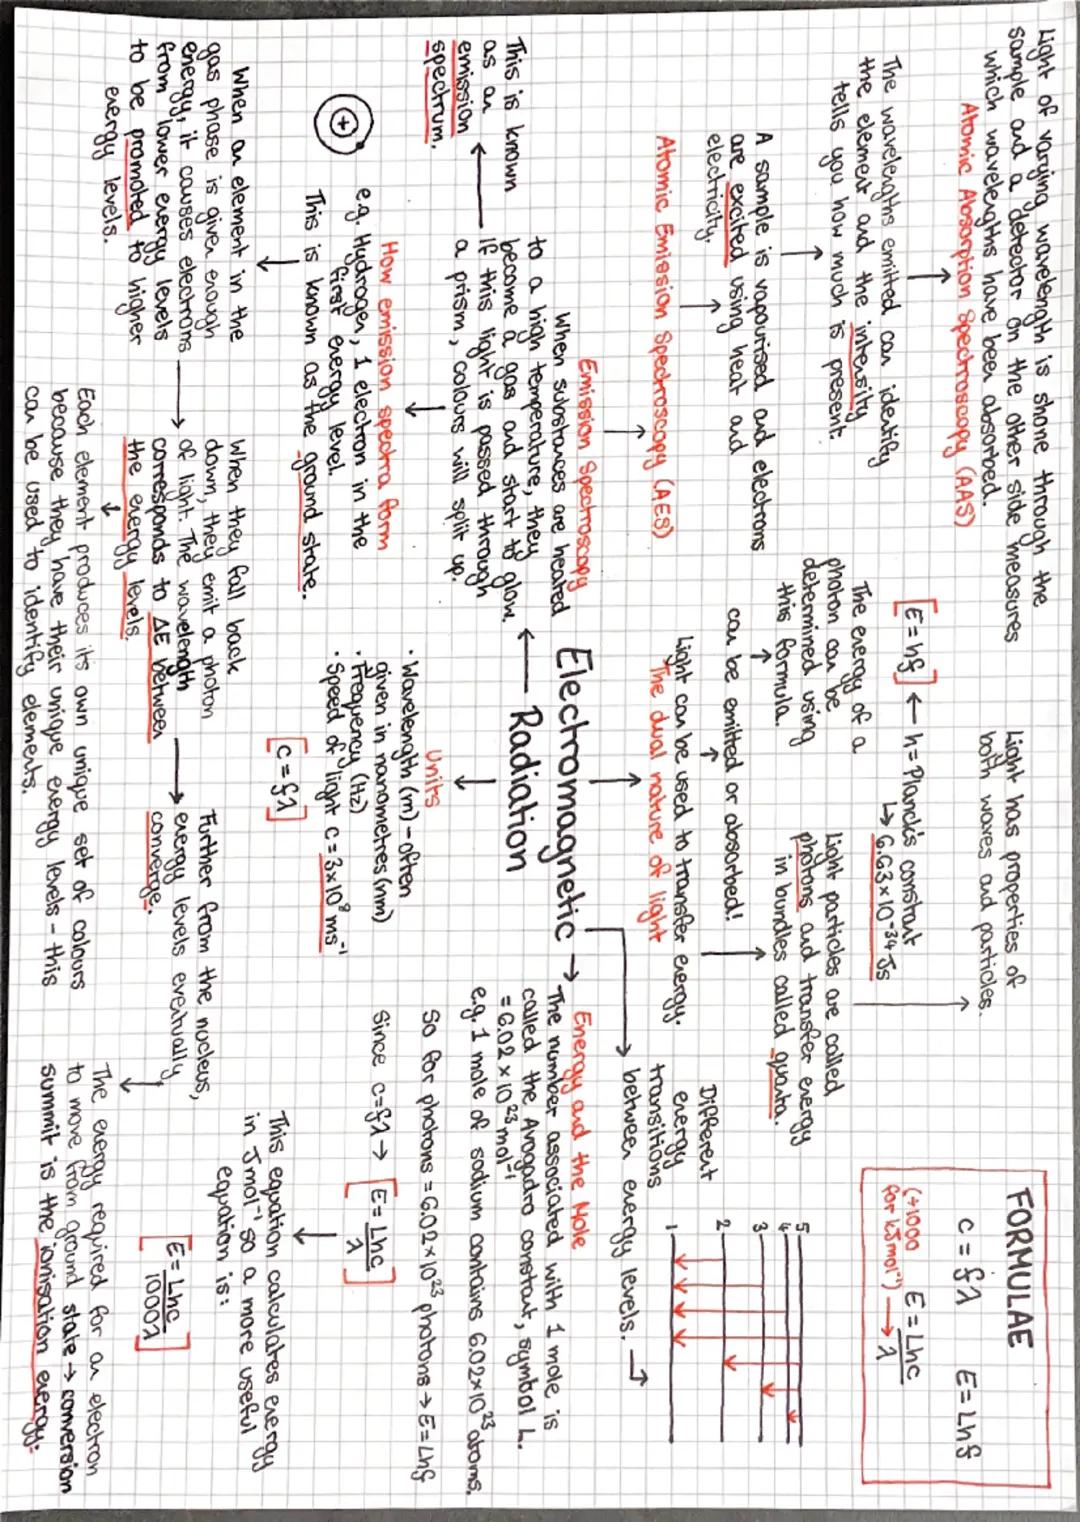 Light of varying wavelength is shone through the
sample and a detector on the other side measures
which wavelengths have been absorbed.
Atomic Absorption Spectroscopy (AAS)
The wavelengths emitted can identify
the element and the intensity
tells you how much is present.
A sample is vapourised and electrons
are excited using heat and
electricity.
Atomic Emission Spectroscopy (AES)
Emission Spectroscopy
When substances are heated
to a high temperature, they
become a gas and start to glow.
If this light is passed through
a prism, colours will split up.
This is known
as an
emission
spectrum.
How emission spectra form
e.g. Hydrogen, 1 electron in the
first energy level.
This is known as the ground state.
+
When an element in the
gas phase is given enough
energy, it causes electrons
from lower energy levels
to be promoted to higher
energy levels.
When they fall back
down, they emit a photon
of light. The wavelength
corresponds to ΔE between
the energy levels.
Each element produces its own unique set of colours
because they have their unique energy levels - this
can be used to identify elements.
Light has properties of
both waves and particles.
[E = hf] ← h = Planck's constant
↳ 6.63×10⁻³⁴ Js
The energy of a
photon can be
determined using
this formula.
Light particles are called
photons and transfer energy
in bundles called quanta.
can be emitted or absorbed!
Light can be used to transfer energy.
The dual nature of light
Electromagnetic
Radiation
Units
• Wavelength (m) - often
given in nanometres (nm)
• Frequency (Hz)
• Speed of light c = 3×10⁸ ms⁻¹
[c = fλ]
Further from the nucleus,
energy levels eventually
converge.
FORMULAE
c = fλ E = Lhf
(÷1000 E = Lhc
for kJmol⁻¹) → λ
Different
energy
transitions
between energy levels. →
5
4
3
2
1
Energy and the Mole
The number associated with 1 mole is
called the Avogadro constant, symbol L.
= 6.02 × 10²³ mol⁻¹
e.g. 1 mole of sodium contains 6.02×10²³ atoms.
So for photons = 6.02×10²³ photons → E = Lhf
Since c = fλ → [E = Lhc
λ]
This equation calculates energy
in Jmol⁻¹ so a more useful
equation is:
[E = Lhc
1000λ]
The energy required for an electron
to move from ground state → conversion
summit is the ionisation energy.